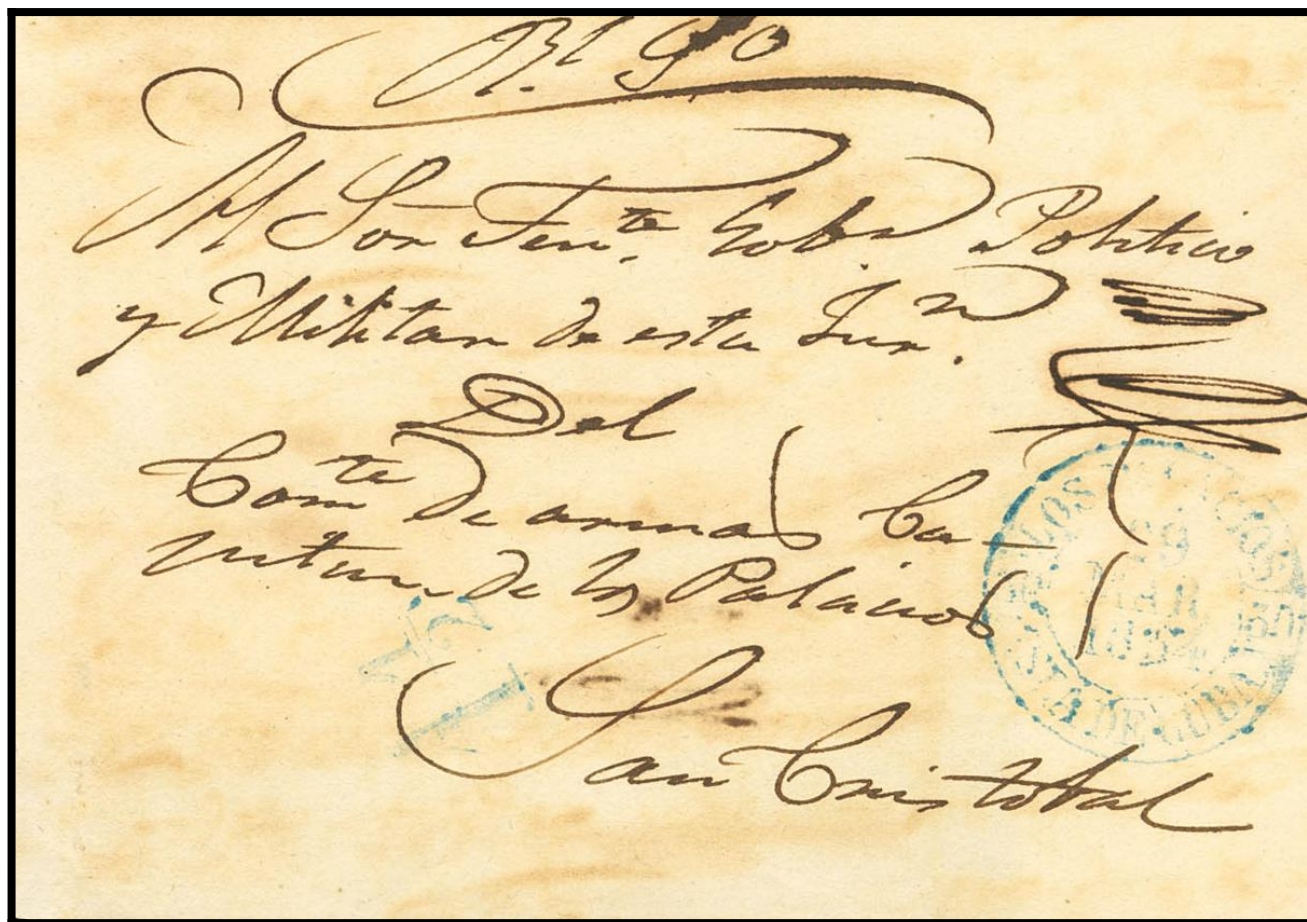 Rl. So
Al Sor Tente. Gobr. Politico
y Militar de esta Jurn.
Del
Comte de armas Ca-
pitan de los Palacios
San Cristobal
LOS PALACIOS
29
MAR
1854
ISLA DE CUBA